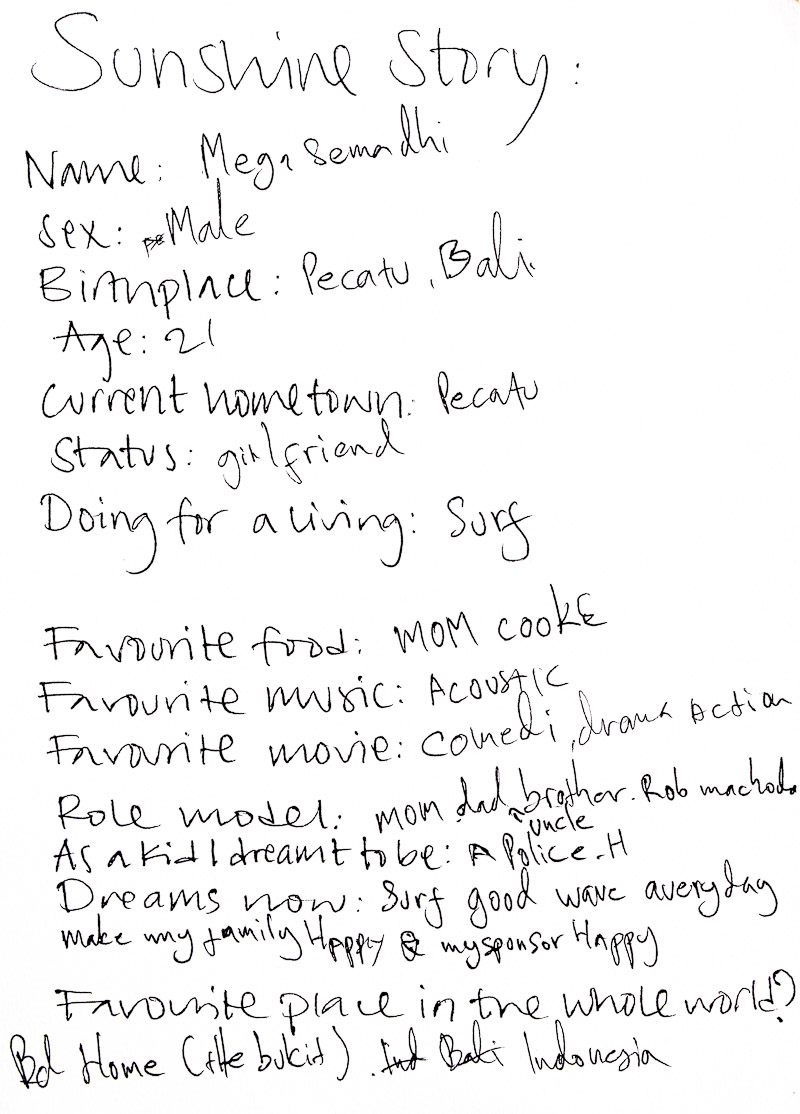 Sunshine Story:
Name: Mega Semadhi
Sex: Male
Birthplace: Pecatu, Bali.
Age: 21
Current hometown: Pecatu
Status: girlfriend
Doing for a living: Surf
Favourite food: MOM COOKE
Favourite music: Acoustic
Favourite movie: Comedi, drama Action
Role model: mom, dad, brother. Rob machodo
uncle
As a kid I dreamt to be: A Police.H
Dreams now: Surf good wave averyday
make my family Happy & my sponsor Happy
Favourite place in the whole world?
Home (the bukit). Bali Indonesia